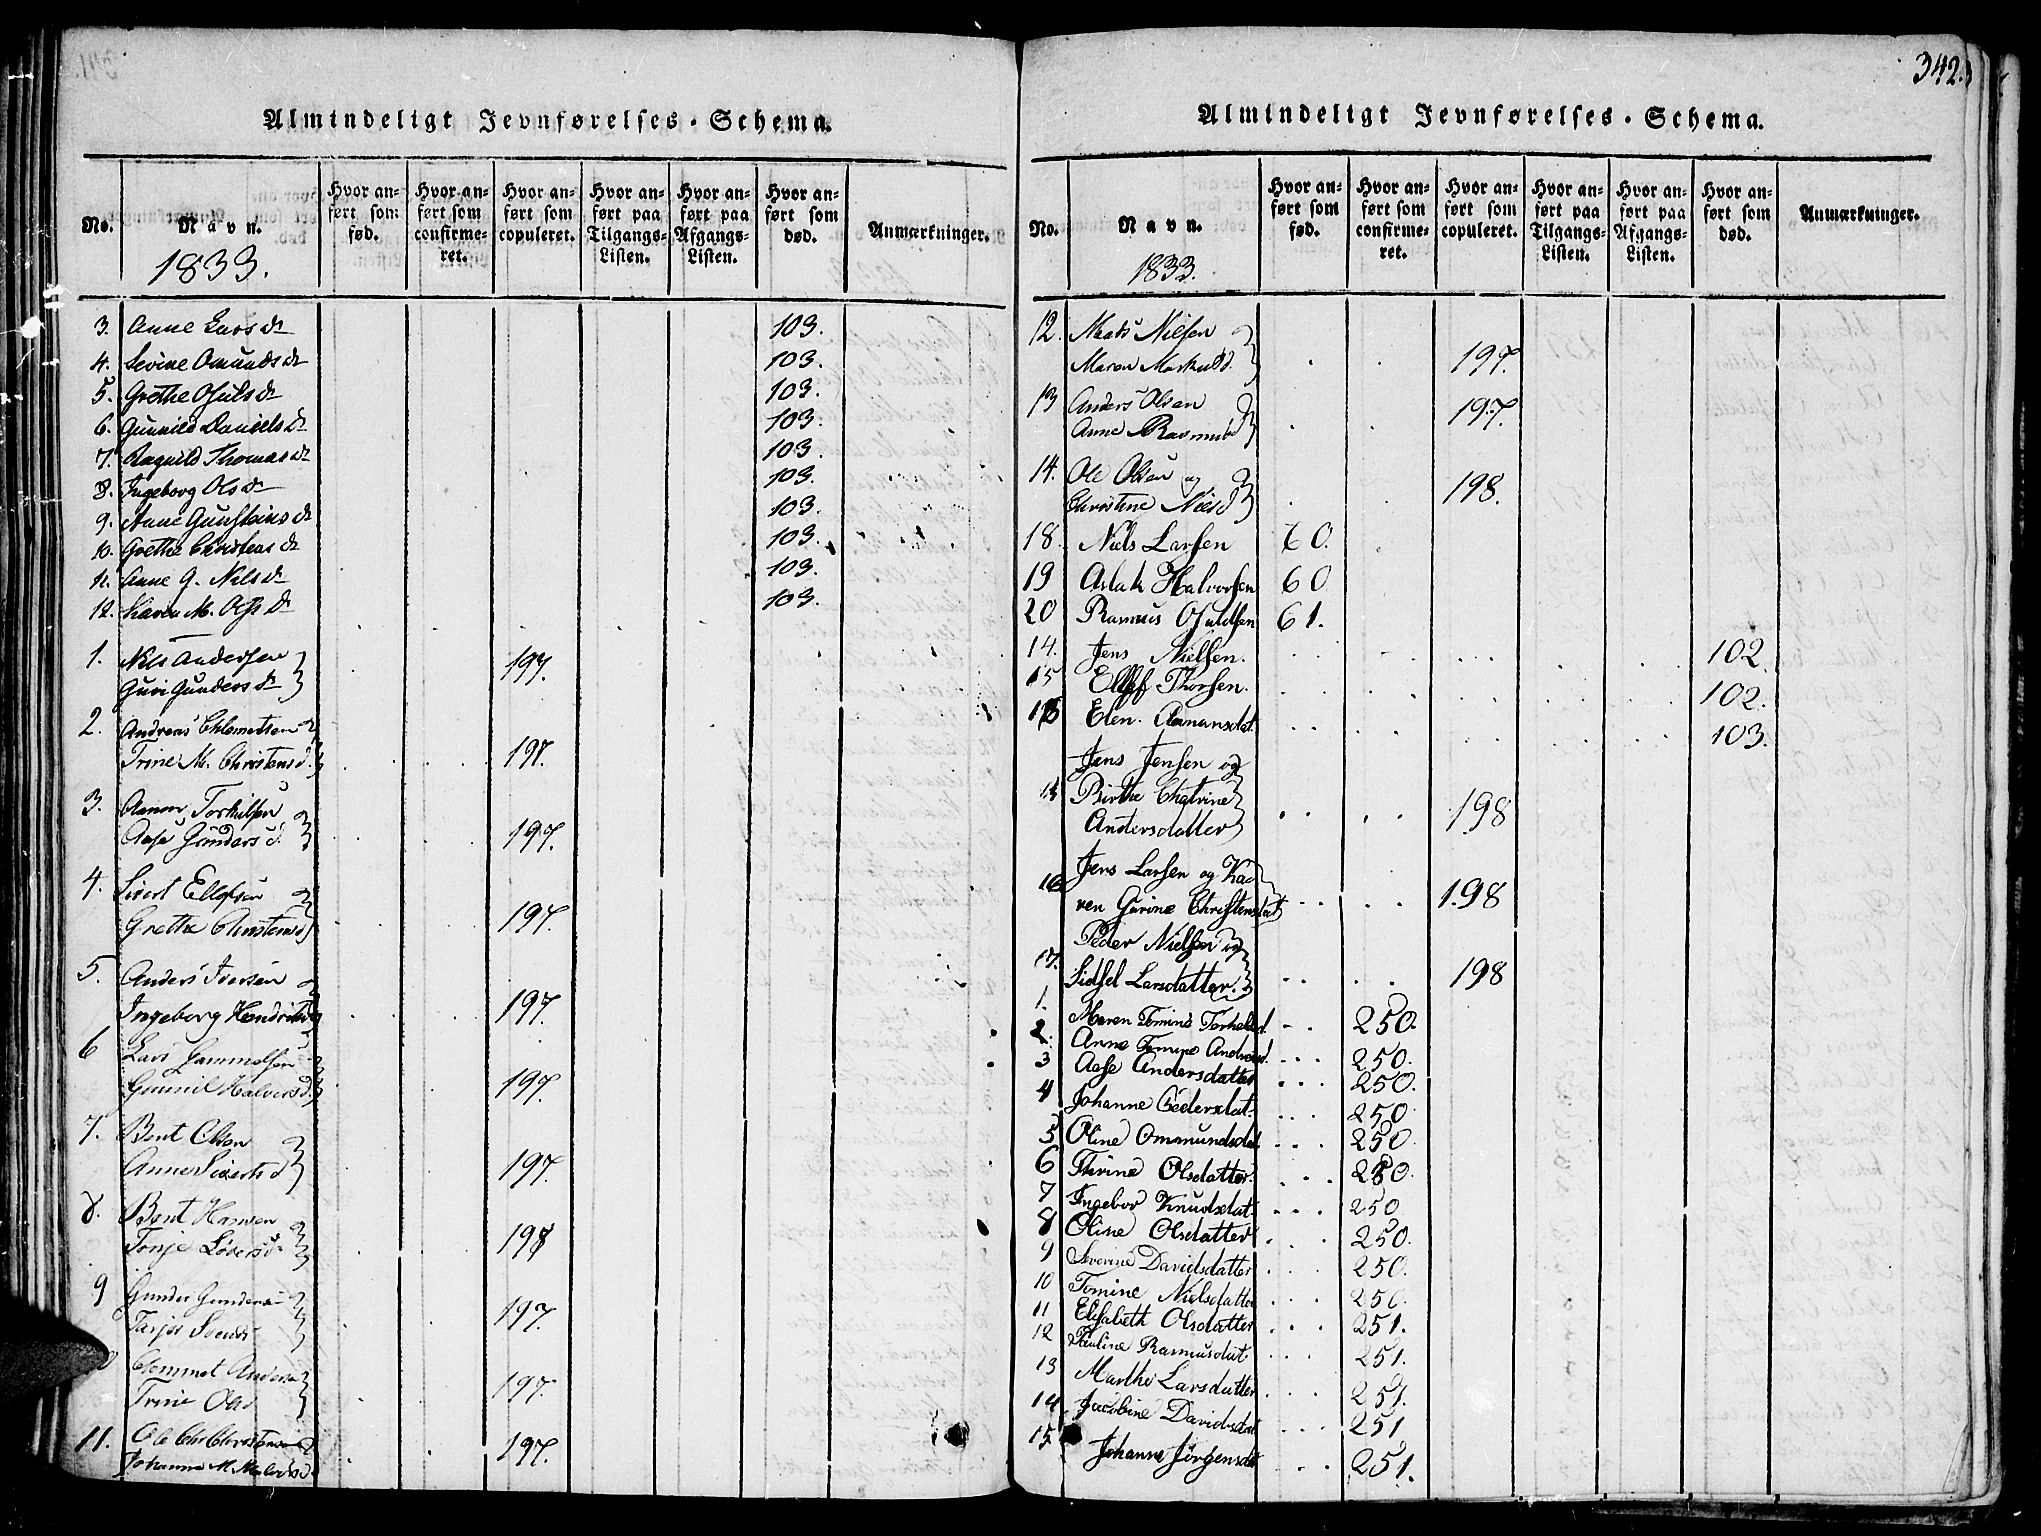 Almindeligt Jevnførelses-Schema.
No.
Navn.
1833.
Hvor anført som fød.
Hvor anført som confirmeret.
Hvor anført som copuleret.
Hvor anført paa Tilgangs-Listen.
Hvor anført paa Afgangs-Listen.
Hvor anført som død.
Anmærkninger.
3. Anne Larsdr 103.
4. Sevine Omundsdr 103.
5. Grethe Osulsdr 103.
6. Gunnild Danielsdr 103.
7. Ragnild Thomasdr 103.
8. Ingeborg Olsdr 103.
9. Anne Gunsteinsdr 103.
10. Grethe Christensdr 103.
11. Anne G. Nilsdr 103.
12. Karen M. dr 103.
1. Niels Andersen
Guri Gundersdr 197.
2. Andreas Chlemetsen
Trine M. Christensd. 197.
3. Aanon Torkilsen
Aase Gundersd. 197.
4. Sivert Ellefsen
Grethe Christensd 197.
5. Anders Iversen
Ingeborg Hendriksd 197.
6 Lars Sammelsen
Gunnil Halvorsd. 197.
7. Bent Olsen
Anne Sivertsd 197.
8. Bent Hansen
Tonje d 197
9 Gunder Gundersen
Tarjer 197.
Clemmet Anders
Trine Olsd 197.
11. Ole Chr Christensen
Johanne M. 197.
342.
Almindeligt Jevnførelses-Schema.
No.
Navn.
1833.
Hvor anført som fød.
Hvor anført som confirmeret.
Hvor anført som copuleret.
Hvor anført paa Tilgangs-Listen.
Hvor anført paa Afgangs-Listen.
Hvor anført som død.
Anmærkninger.
12. Mads Nielsen
Maren Markusd. 197.
13 Anders Olsen
Anne Rasmusd 197.
14. Ole Olsen og
Christine Nielsd 198.
18. Niels Larsen 60.
19 Aslak Halvorsen 60
20 Rasmus Osuldsen 61.
14. Jens Nielsen. 102.
15 Ellef Thorsen. 102.
16 Elen Aanansdat. 103.
Jens Jensen og
15 Birthe Chatrine
Andersdatter 198
Jens Larsen og Ka
16 ren Gurine Christensdat 198
Peder Nielsen og
17. Sidsel Larsdatter. 198
1. Maren Tomine Torkelsd. 250.
2. Anne Tomine Andersd. 250.
3 Aase Andersdatter 250.
4 Johanne Pedersdat. 250.
5 Oline Ommundsdat 250.
6 Thrine Olsdatter. 250.
7 Ingebor Knudsdat. 250
8 Oline Olsdatter 250.
9 Severine Davidsdatter 250.
10 Tomine Nielsdatter 250.
11 Elisabeth Olsdatter 251.
12 Pauline Rasmusdat 251.
13 Marthe Larsdatter 251.
14 Jacobine Davidsdat 251
15 Johanne Jörgensdat 251.